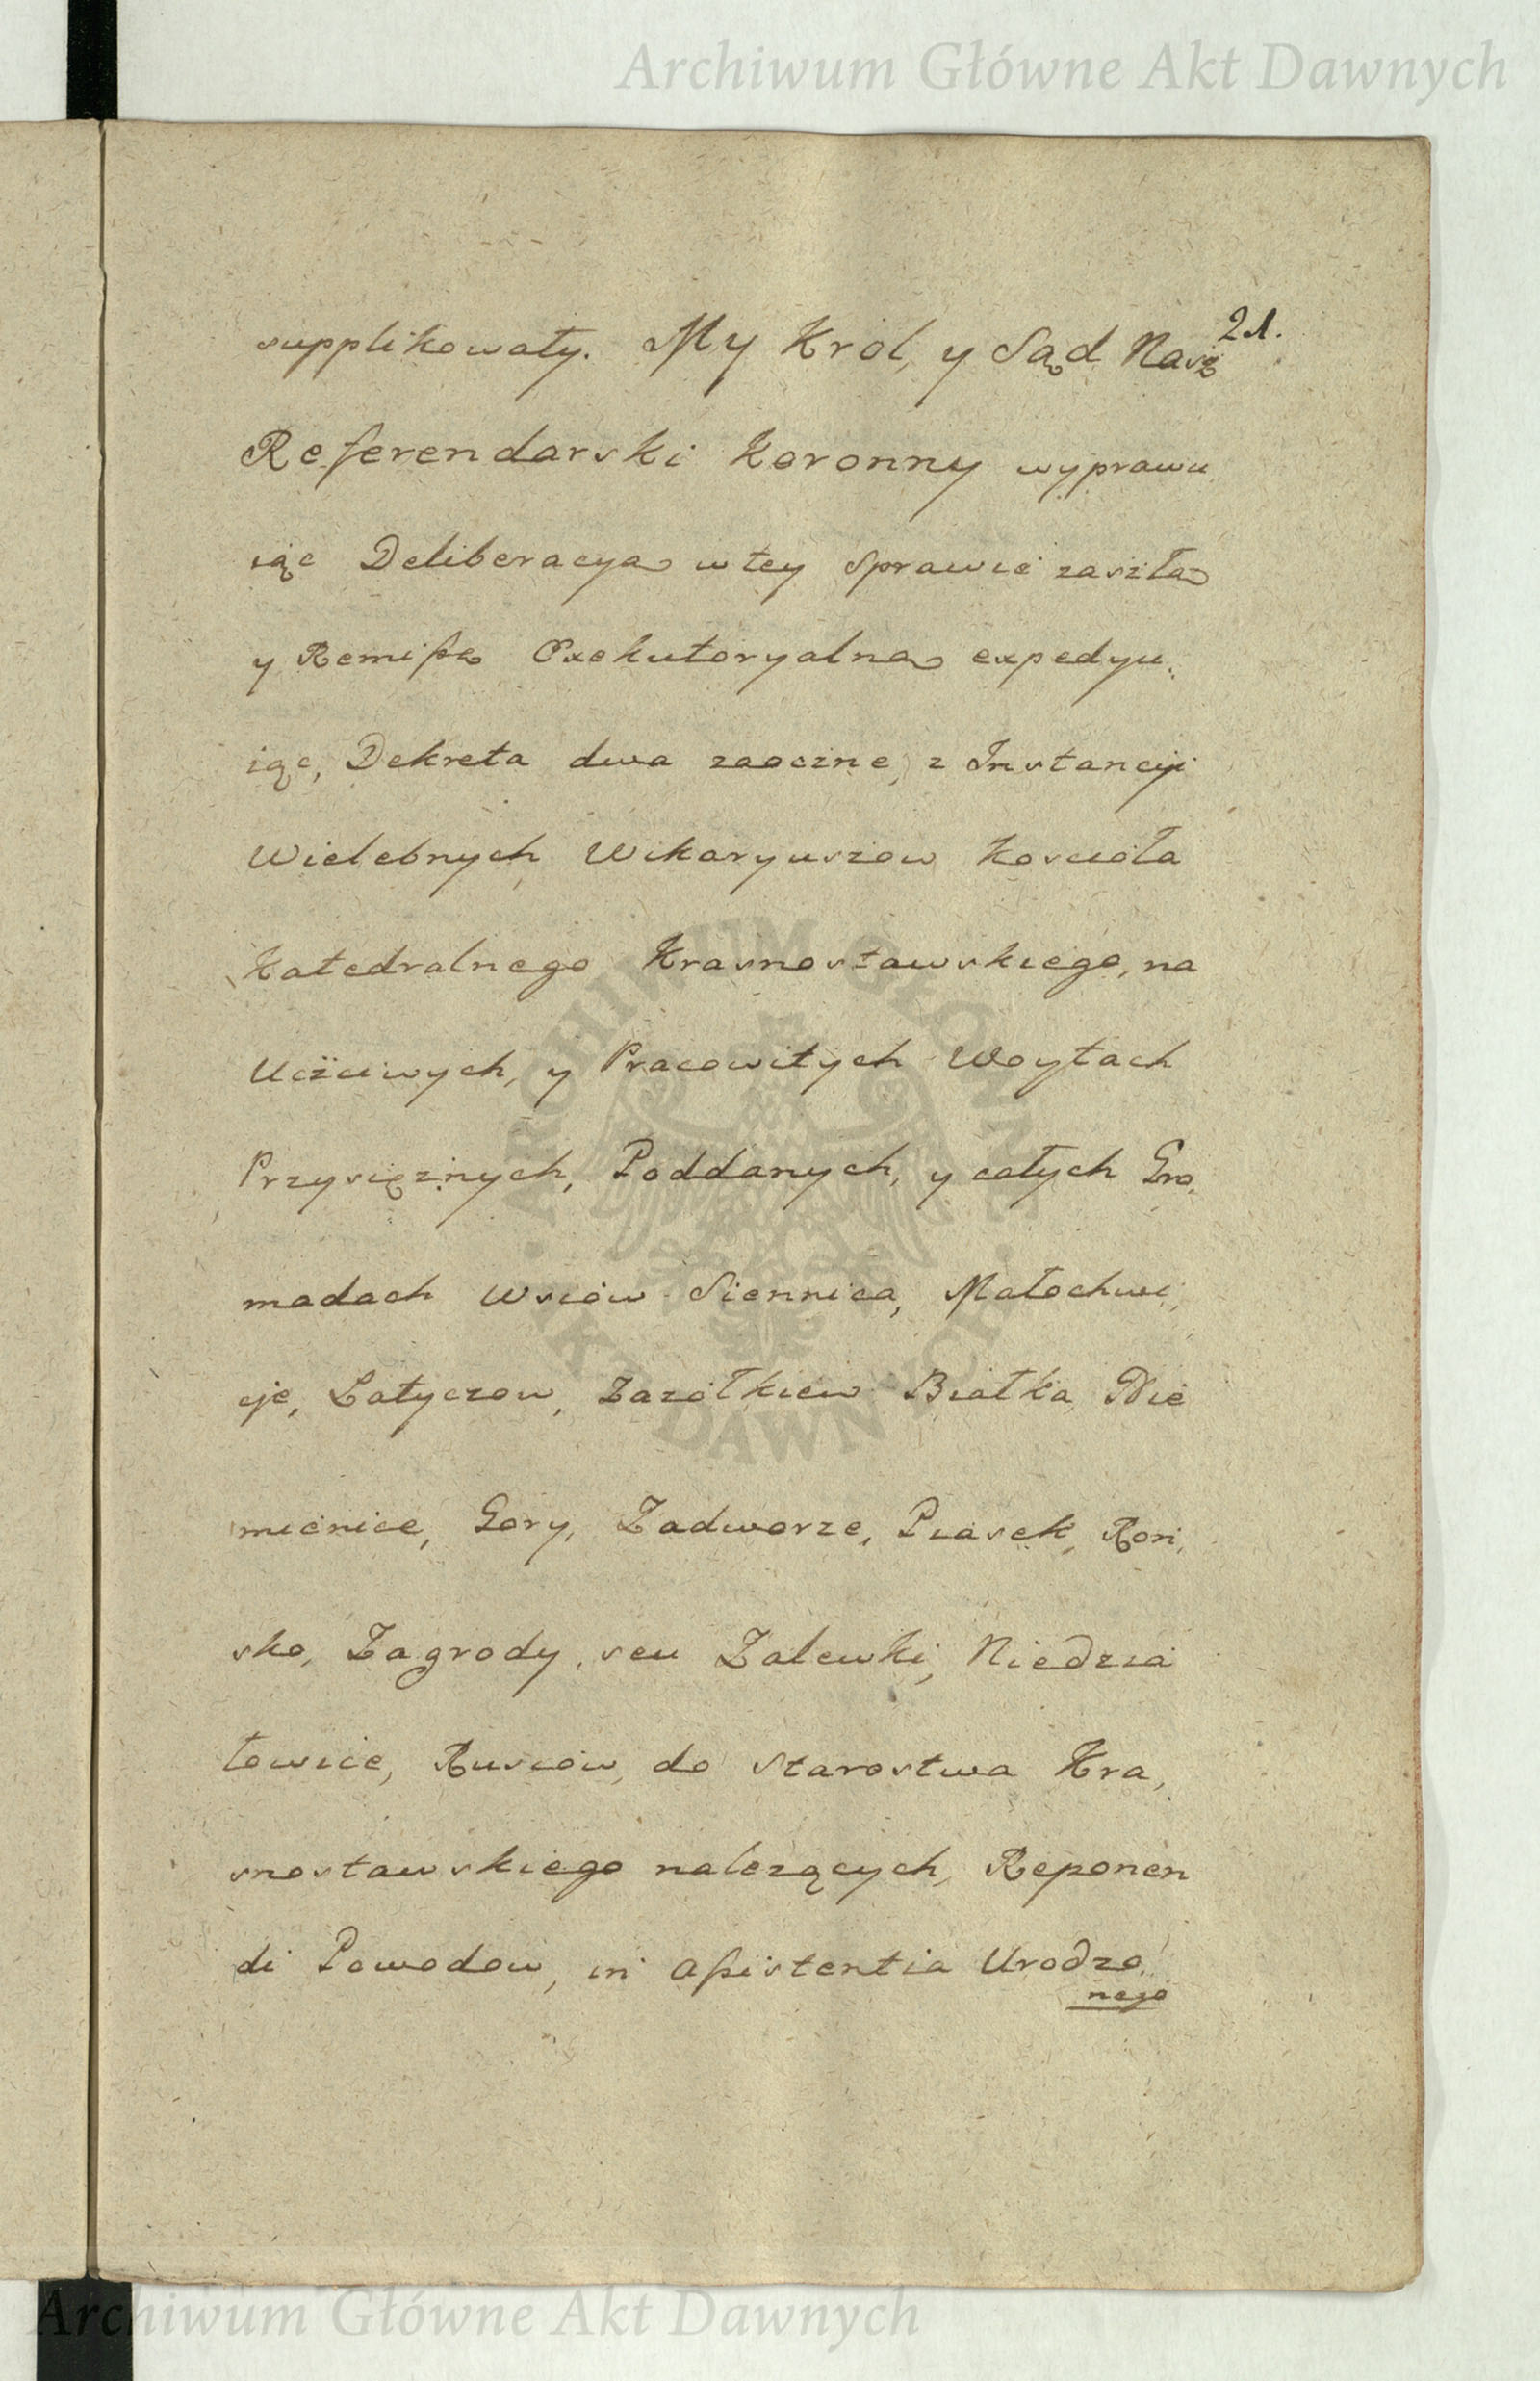 Archiwum Główne Akt Dawnych
21.
supplikowały. My Krol, y Sąd Nasz
Referendarski Koronny wyprawu
iąc Deliberacyą w tey Sprawie zaszłą
y Remißę Exekutoryalną expedyu,
iąc, Dekreta dwa zaoczne, z Instancyi
Wielebnych Wikaryuszow Koscioła
Katedralnego Krasnostawskiego, na
Uczciwych, y Pracowitych Woytach
Przysięznych, Poddanych, y całych Gro,
madach Wsiow Siennica, Małochwi,
eje, Latyczow, Zazółkiew Białka, Nie
mienice, Gory, Zadworze, Piasek, Roni,
sko, Zagrody, seu Zalewki, Niedzia
łowice, Rusiow, do Starostwa Kra,
snostawskiego nalezących, Reponen
di Powodow, in aßistentia Urodzo,
nego
ARCHIWUM GŁÓWNE
AKT DAWNYCH
Archiwum Główne Akt Dawnych